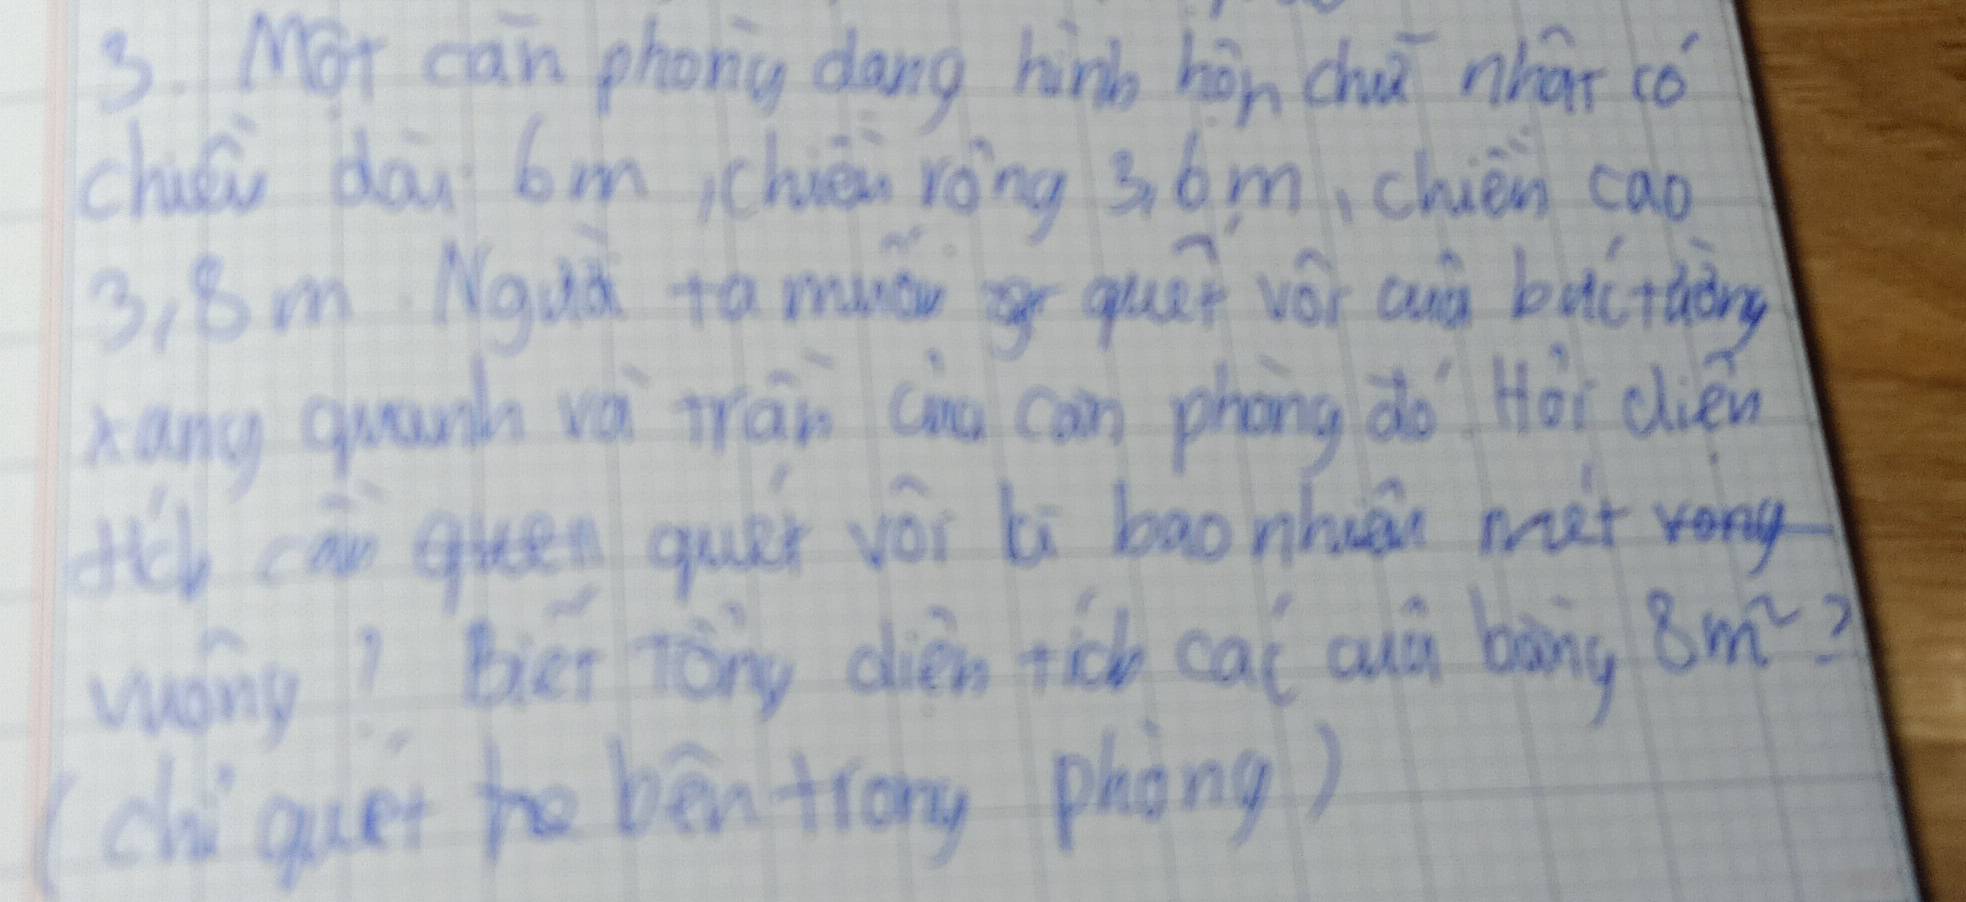 3. Một căn phòng dạng hình hộp chữ nhật có
chiều dài 6m, chiều rộng 3,6m, chiều cao
3,8m. Người ta muốn quét vôi các bức tường
xung quanh và trần của căn phòng đó. Hỏi diện
tích cần quét vôi là bao nhiêu mét
vuông? Biết tổng diện tích các cửa bằng 8m²?
(chỉ quét bên trong phòng)